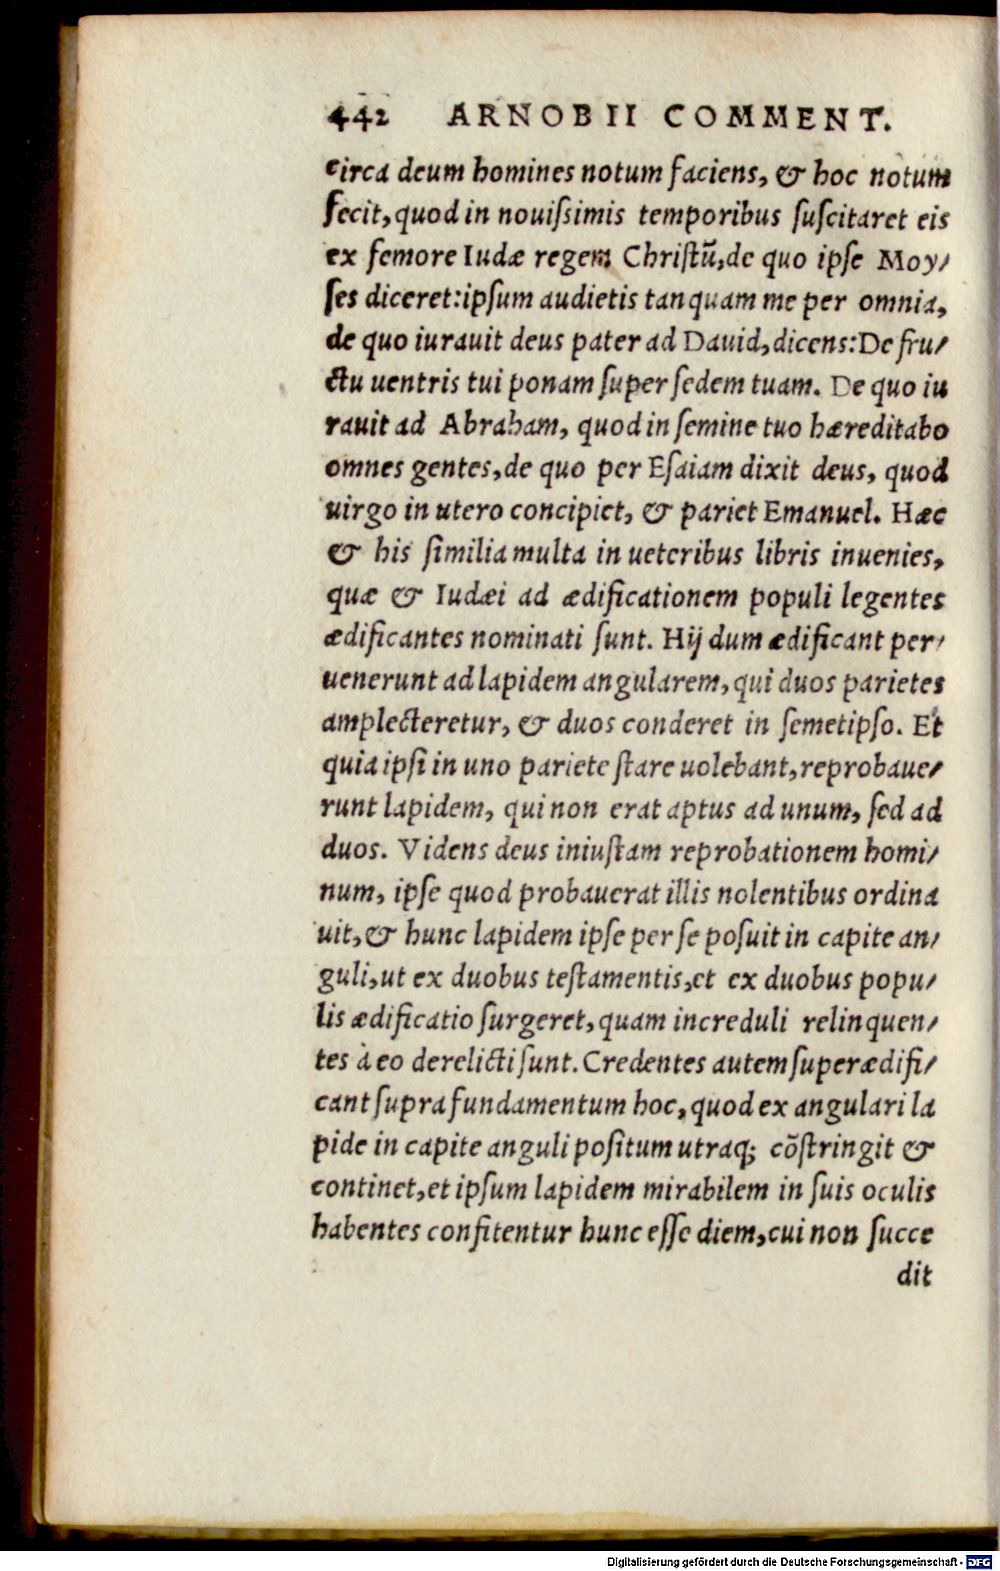 442 ARNOBII COMMENT.
circa deum homines notum faciens, & hoc notum
fecit, quod in nouißimis temporibus ſuſcitaret eis
ex femore Iudæ regem Chriſtū, de quo ipſe Moy/
ſes diceret: ipſum audietis tanquam me per omnia,
de quo iurauit deus pater ad Dauid, dicens: De fru/
ctu uentris tui ponam ſuper ſedem tuam. De quo iu
rauit ad Abraham, quod in ſemine tuo hæreditabo
omnes gentes, de quo per Eſaiam dixit deus, quod
uirgo in utero concipiet, & pariet Emanuel. Hæc
& his ſimilia multa in ueteribus libris inuenies,
quæ & Iudæi ad ædificationem populi legentes
ædificantes nominati ſunt. Hij dum ædificant per/
uenerunt ad lapidem angularem, qui duos parietes
amplecteretur, & duos conderet in ſemetipſo. Et
quia ipſi in uno pariete ſtare uolebant, reprobaue/
runt lapidem, qui non erat aptus ad unum, ſed ad
duos. Videns deus iniuſtam reprobationem homi/
num, ipſe quod probauerat illis nolentibus ordina
uit, & hunc lapidem ipſe per ſe poſuit in capite an/
guli, ut ex duobus teſtamentis, et ex duobus popu/
lis ædificatio ſurgeret, quam increduli relinquen/
tes à eo derelicti ſunt. Credentes autem ſuperædifi/
cant ſupra fundamentum hoc, quod ex angulari la
pide in capite anguli poſitum utraq; cõſtringit &
continet, et ipſum lapidem mirabilem in ſuis oculis
habentes confitentur hunc eſſe diem, cui non ſucce
dit
Digitalisierung gefördert durch die Deutsche Forschungsgemeinschaft - DFG